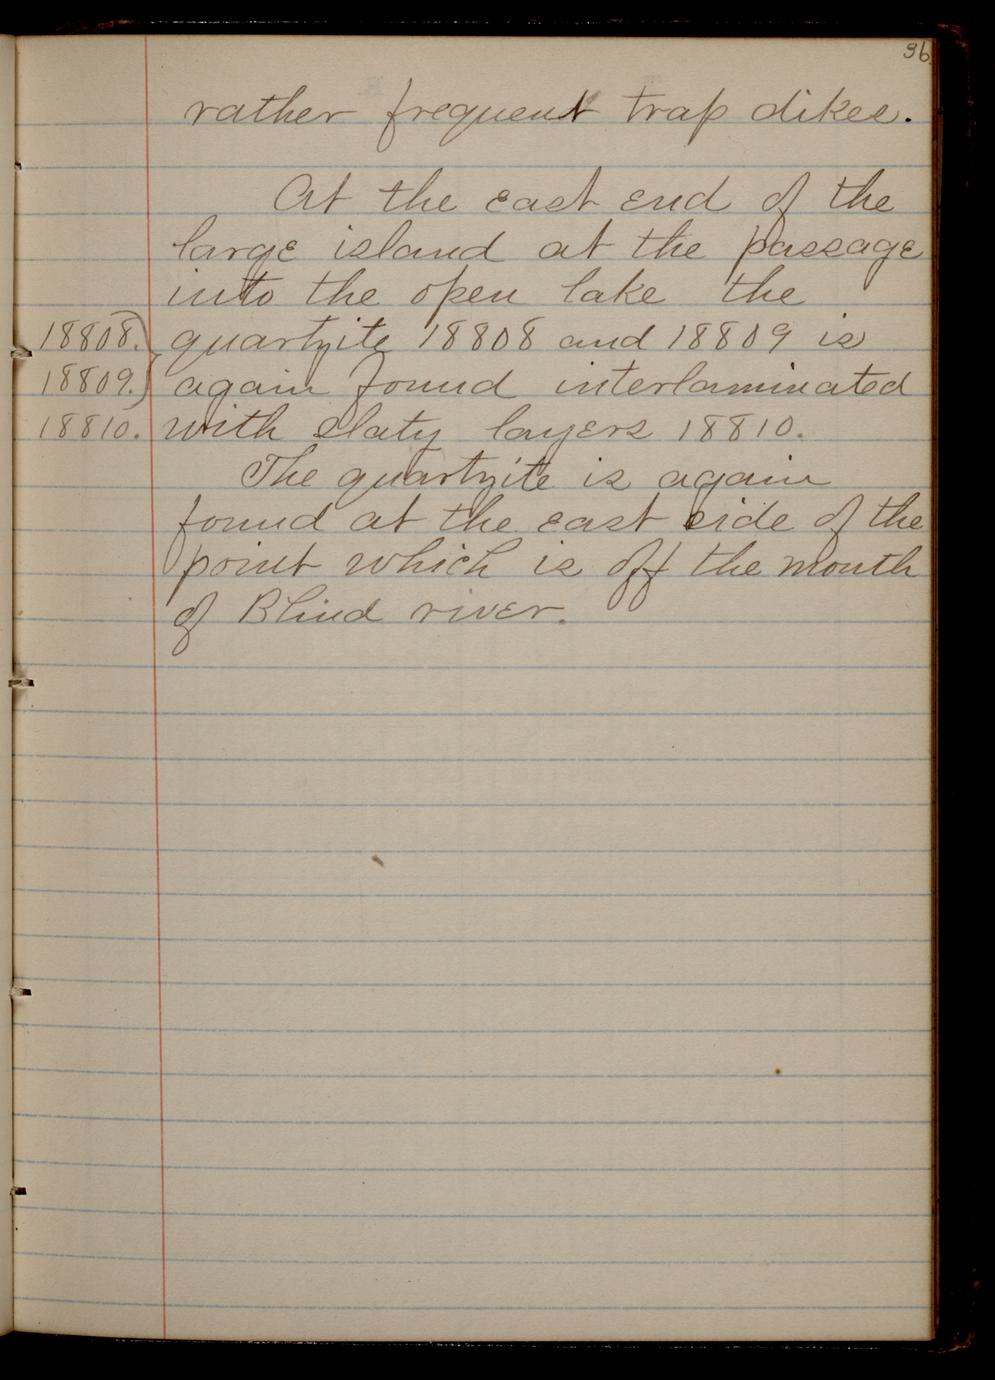 36
rather frequent trap dikes.
At the east end of the
large island at the passage
into the open lake the
18808. quartzite 18808 and 18809 is
18809. again found interlaminated
18810. with slaty layers 18810.
The quartzite is again
found at the east side of the
point which is off the mouth
of Blind river.